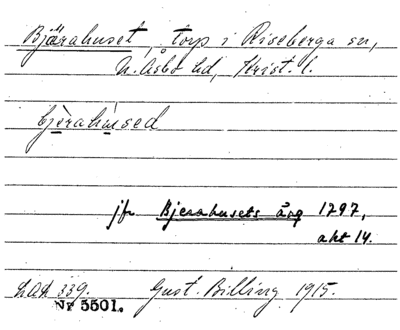 Bjärahuset, torp i Riseberga sn,
N. Åsbo hd, Krist. l.
bjèrahùsed
jfr Bjerahusets äng 1797,
akt 14.
LAA 339. Gust. Billing 1915.
Nr 5501.